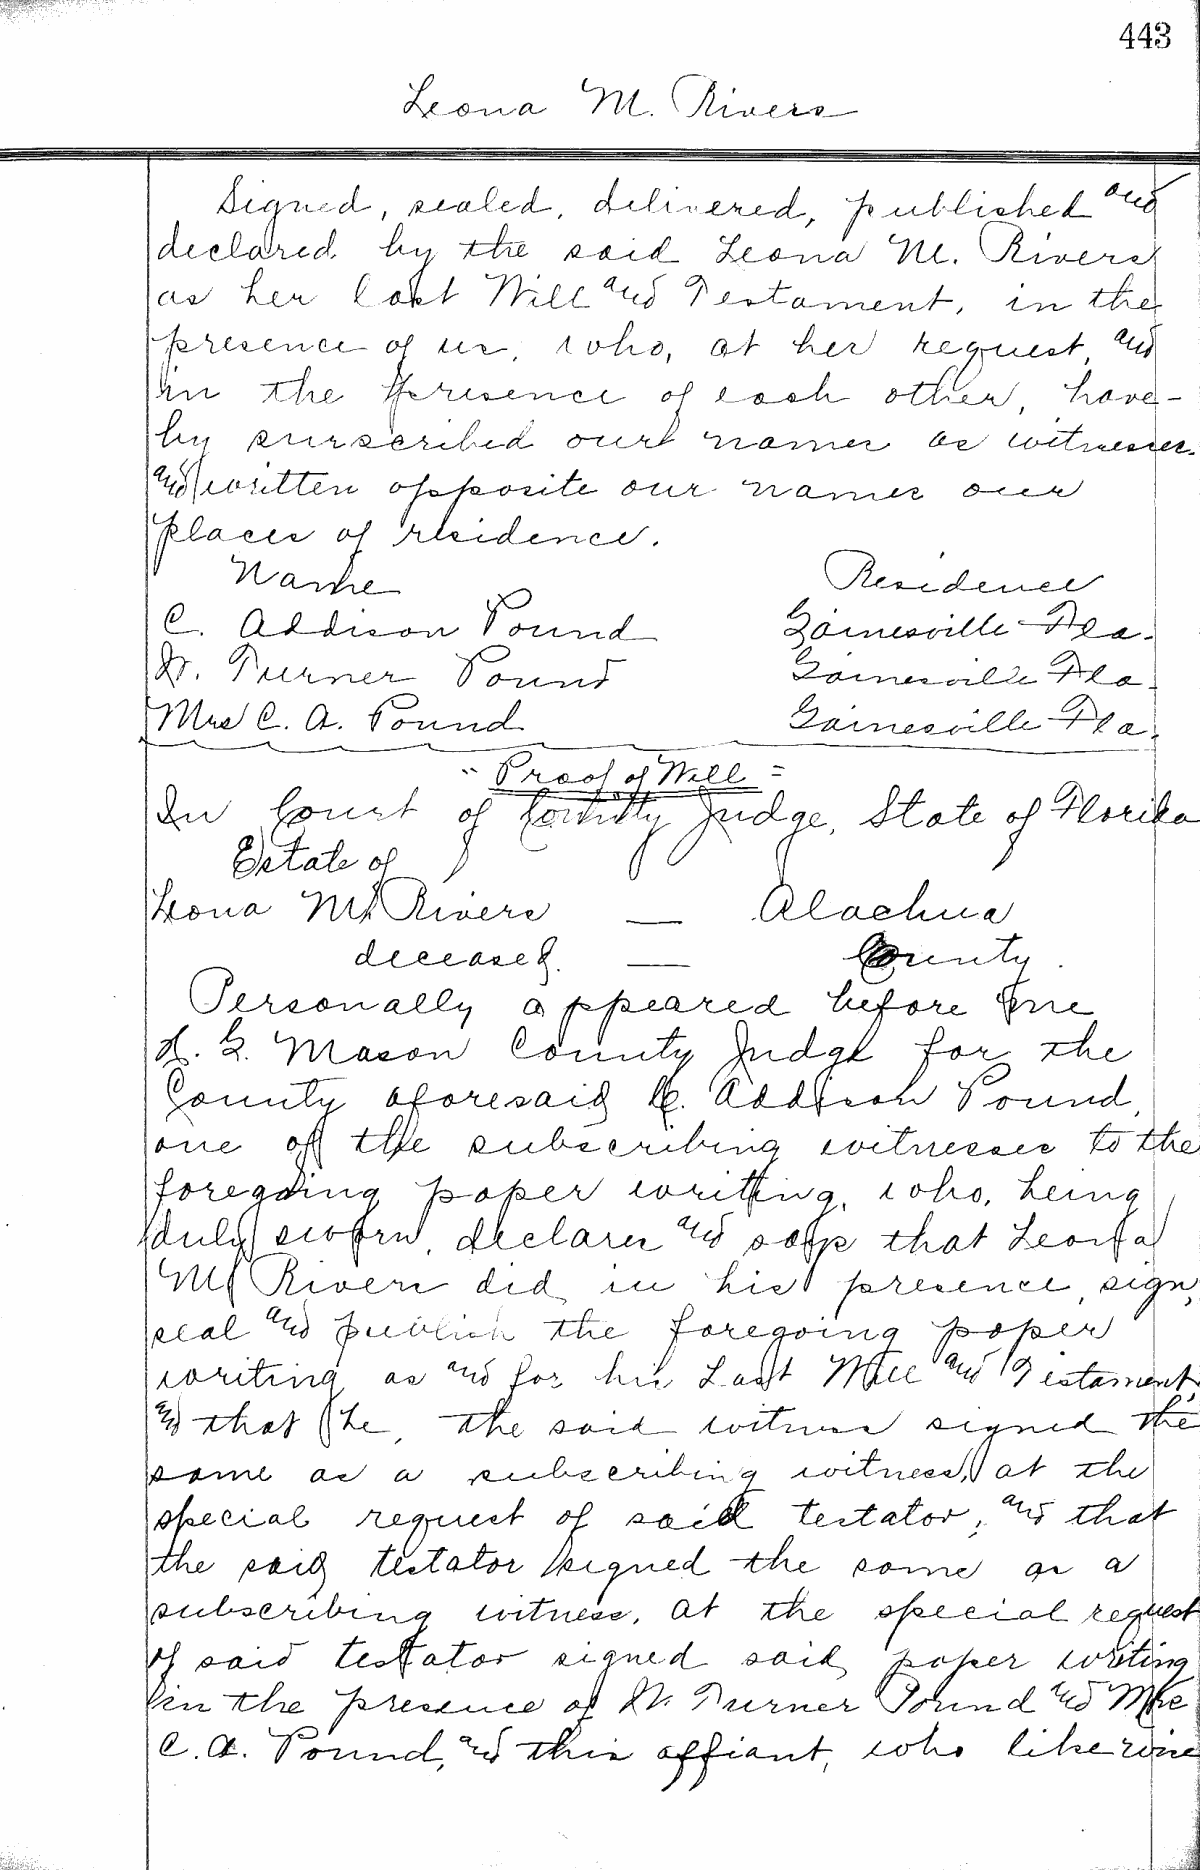 443
Leona M. Rivers
Signed, sealed, delivered, published and
declared by the said Leona M. Rivers
as her last Will and Testament, in the
presence of us, who, at her request, and
in the presence of each other, have-
by surscribed our names as witnesses
and written opposite our names our
places of residence.
Name Residence
C. Addison Pound Gainesville Fla.
W. Turner Pound Gainesville Fla.
Mrs C. A. Pound Gainesville Fla.
" Proof of Will "
In Court of County Judge, State of Florida
Estate of
Leona M. Rivers — Alachua
deceased. — County.
Personally appeared before me
H. G. Mason County Judge for the
County aforesaid C. Addison Pound,
one of the subscribing witnesses to the
foregoing paper writing, who, being
duly sworn, declares and says that Leona
M. Rivers did in his presence, sign,
seal and publish the foregoing paper
writing as and for his Last Will and Testament,
and that he, the said witness signed the
same as a subscribing witness, at the
special request of said testator; and that
the said testator signed the same as a
subscribing witness, at the special request
of said testator signed said paper writing
in the presence of W. Turner Pound and Mrs
C. A. Pound, and this affiant, who likewise